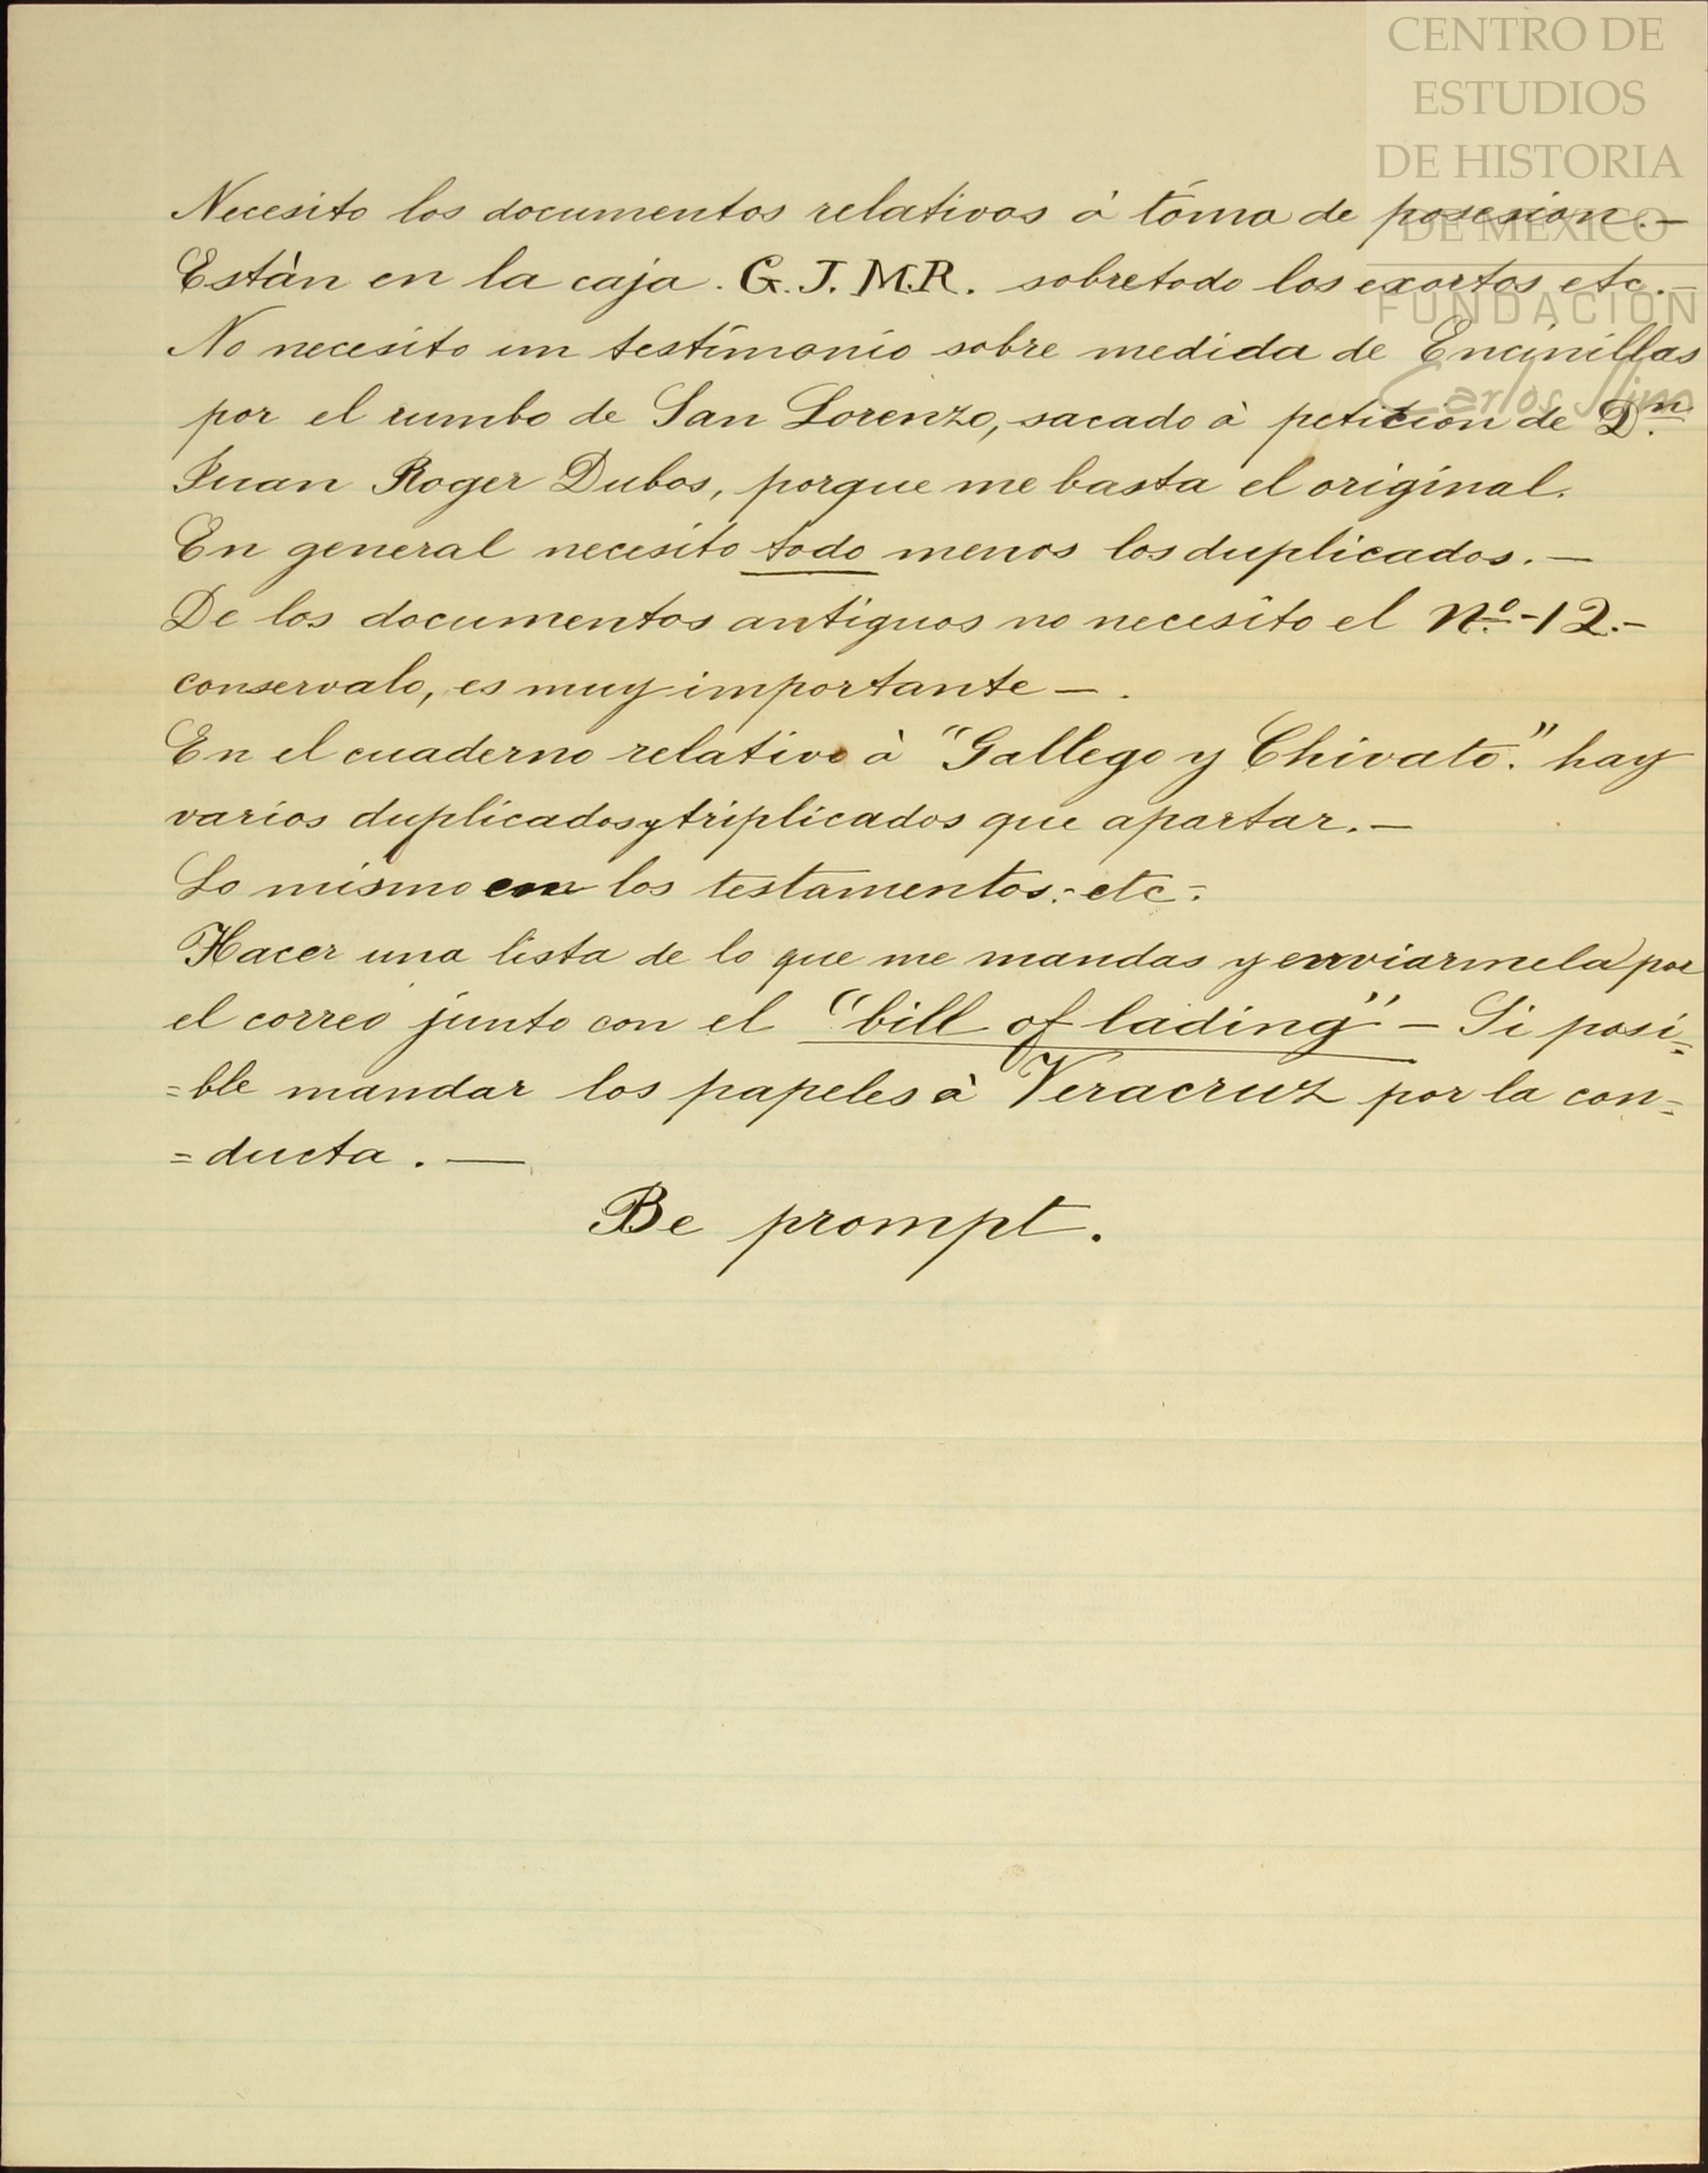 CENTRO DE
ESTUDIOS
DE HISTORIA
DE MÉXICO
FUNDACIÓN
Carlos Slim
Necesito los documentos relativos à tóma de posesion.—
Estàn en la caja. G. J. M.R. sobretodo los exortos etc.—
No necesito un testimonio sobre medida de Encinillas
por el rumbo de San Lorenzo, sacado à peticion de Dn.
Juan Roger Dubos, porque me basta el original.
En general necesito todo menos los duplicados.—
De los documentos antiguos no necesito el No.-12.-
conservalo, es muy importante —.
En el cuaderno relativo à "Gallego y Chivato." hay
varios duplicados y triplicados que apartar.—
Lo mismo con los testamentos.- etc-.
Hacer una lista de lo que me mandas y enviarmela por
el correo junto con el "bill of lading" — Si posi=
=ble mandar los papeles à Veracruz por la con=
=ducta. —
Be prompt.